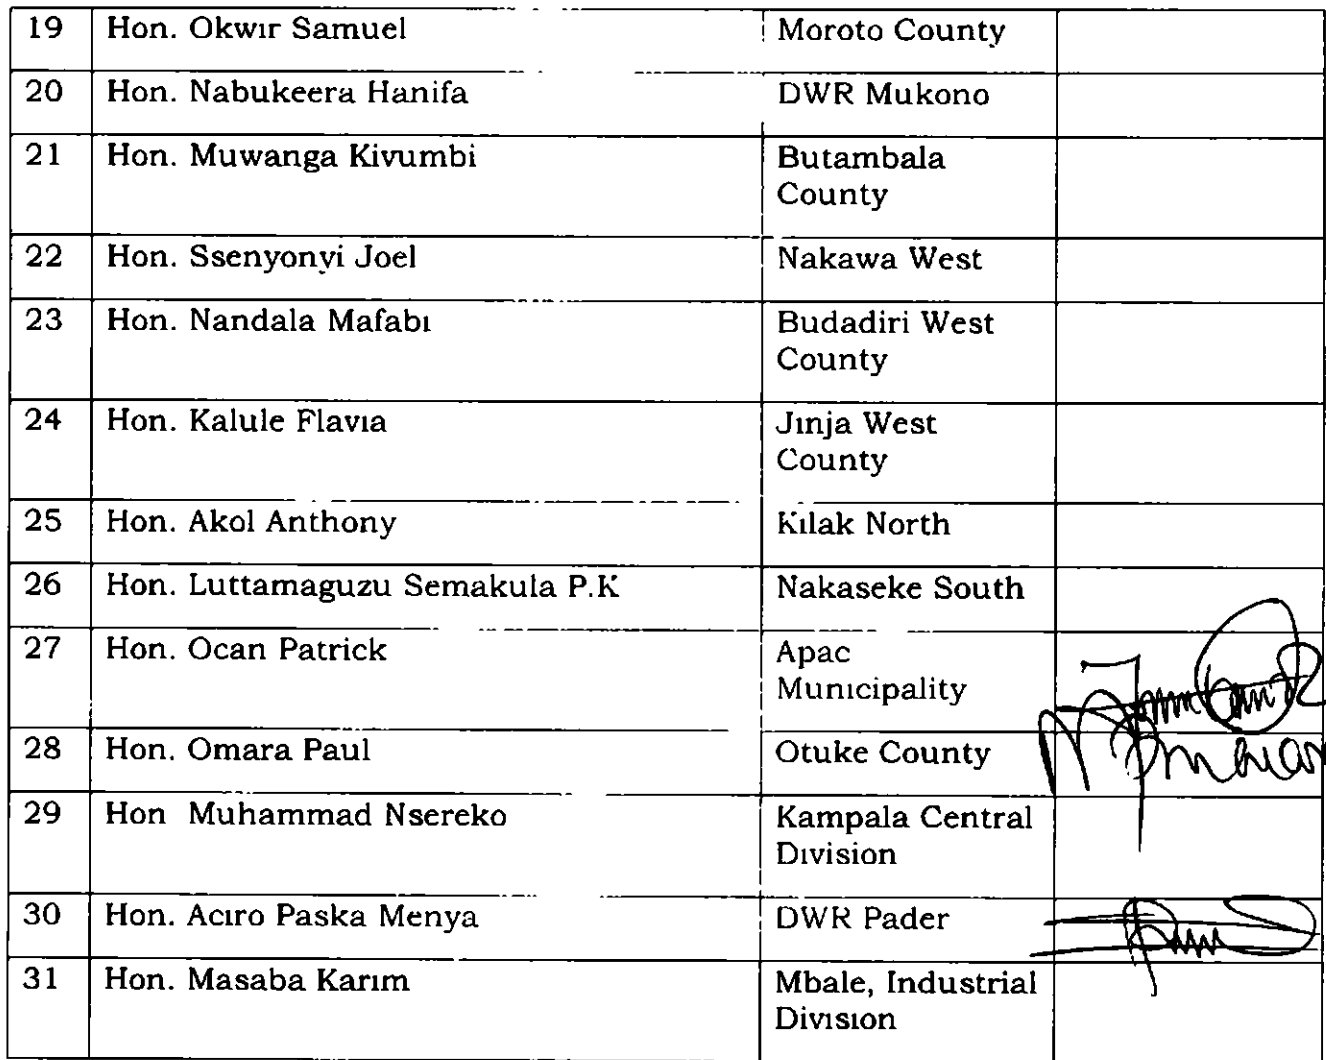 19 Hon. Okwir Samuel Moroto County
20 Hon. Nabukeera Hanifa DWR Mukono
21 Hon. Muwanga Kivumbi Butambala
County
22 Hon. Ssenyonyi Joel Nakawa West
23 Hon. Nandala Mafabi Budadiri West
County
24 Hon. Kalule Flavia Jinja West
County
25 Hon. Akol Anthony Kilak North
26 Hon. Luttamaguzu Semakula P.K Nakaseke South
27 Hon. Ocan Patrick Apac
Municipality
28 Hon. Omara Paul Otuke County
29 Hon Muhammad Nsereko Kampala Central
Division
30 Hon. Aciro Paska Menya DWR Pader
31 Hon. Masaba Karim Mbale, Industrial
Division